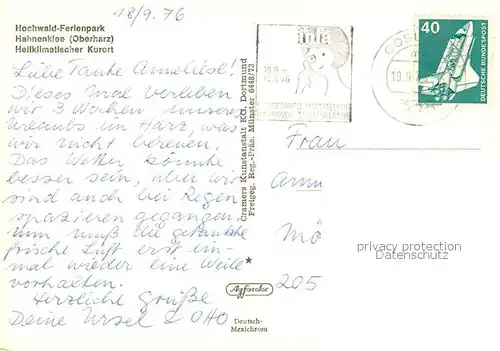 18/9. 76
Hochwald-Ferienpark
Hahnenklee (Oberharz)
Heilklimatischer Kurort
Liebe Tante Anneliese!
Dieses Mal verleben
wir 3 Wochen unseres
Urlaubs im Harz, was
wir nicht bereuen.
Das Wetter könnte
besser sein, aber wir
sind auch bei Regen
spazieren gegangen.
Nun muß die getankte
frische Luft erst ein-
mal wieder eine Weile
vorhalten.
Herzliche Grüße
Deine Ursel & Otto
Cramers Kunstanstalt KG. Dortmund
Freigeg. Reg.-Präs. Münster 6448/73
Agfacolor
Deutsch-
Mexichrom
40
DEUTSCHE BUNDESPOST
Frau
Mö
205
privacy protection
Datenschutz